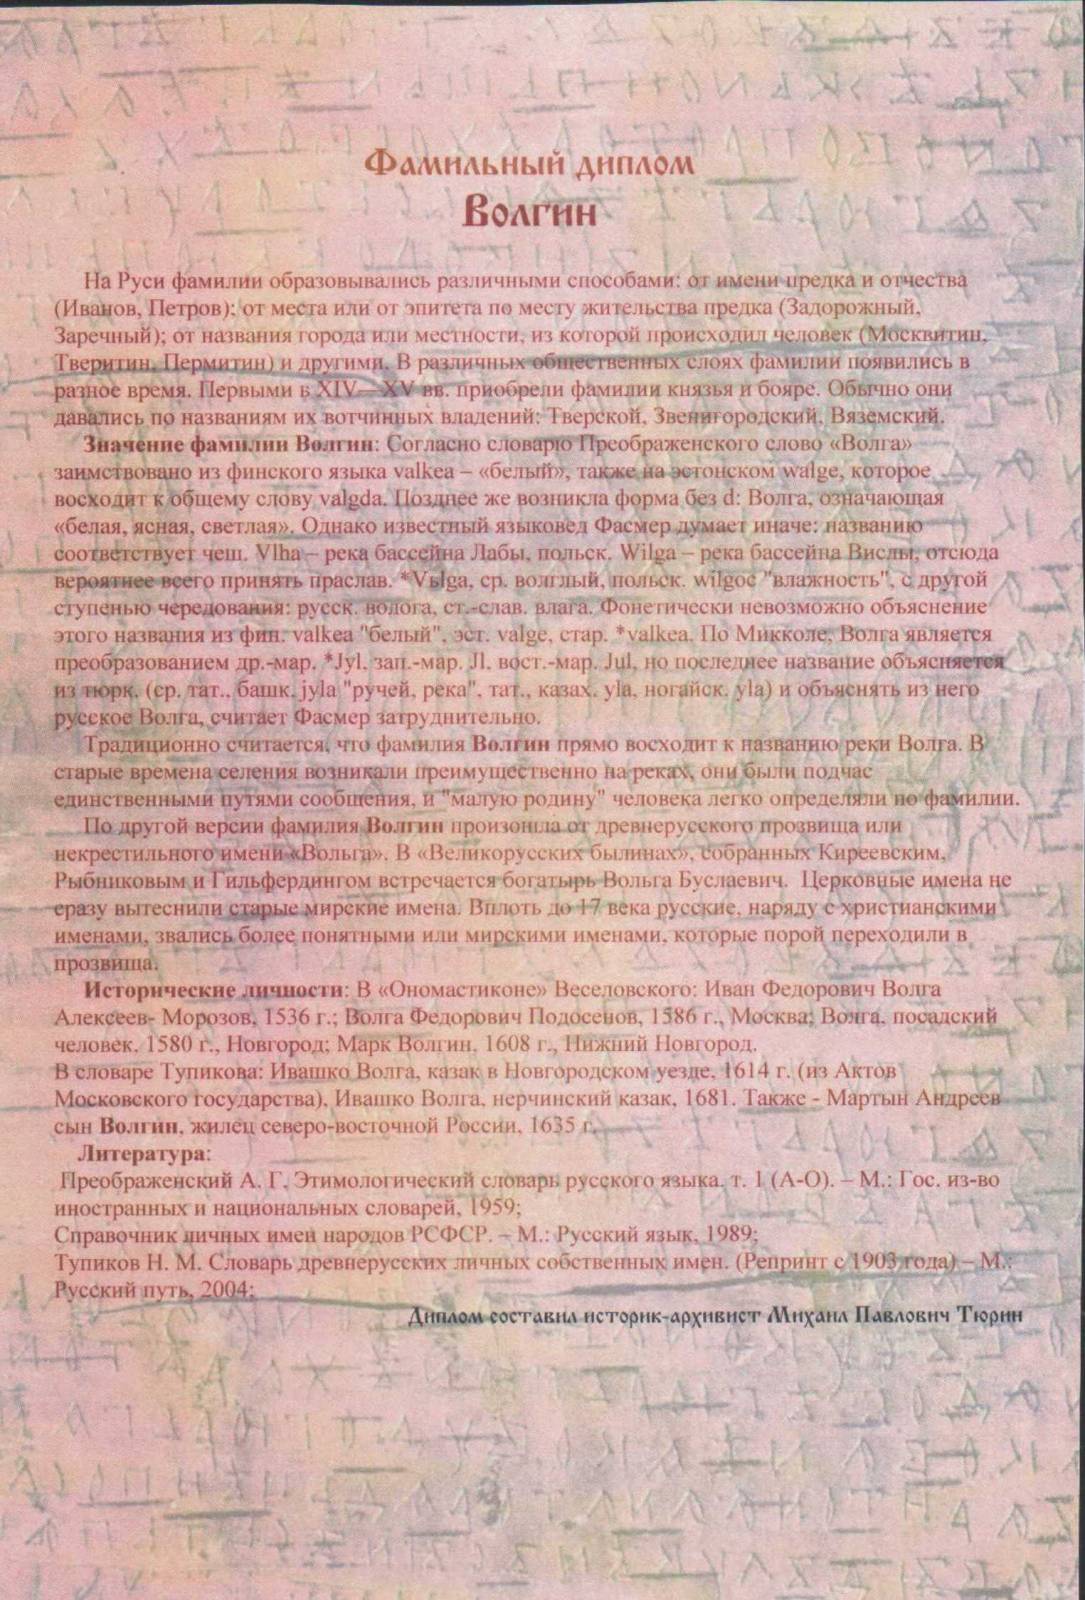 Фамильный диплом
Волгин
На Руси фамилии образовывались различными способами: от имени предка и отчества
(Иванов, Петров); от места или от эпитета по месту жительства предка (Задорожный,
Заречный); от названия города или местности, из которой происходил человек (Москвитин,
Тверитин, Пермитин) и другими. В различных общественных слоях фамилии появились в
разное время. Первыми в XIV—XV вв. приобрели фамилии князья и бояре. Обычно они
давались по названиям их вотчинных владений: Тверской, Звенигородский, Вяземский.
Значение фамилии Волгин: Согласно словарю Преображенского слово «Волга»
заимствовано из финского языка valkea – «белый», также на эстонском walge, которое
восходит к общему слову valgda. Позднее же возникла форма без d: Волга, означающая
«белая, ясная, светлая». Однако известный языковед Фасмер думает иначе: названию
соответствует чеш. Vlha – река бассейна Лабы, польск. Wilga – река бассейна Вислы, отсюда
вероятнее всего принять праслав. *Vьlga, ср. волглый, польск. wilgoc "влажность", с другой
ступенью чередования: русск. волога, ст.-слав. влага. Фонетически невозможно объяснение
этого названия из фин. valkea "белый", эст. valge, стар. *valkea. По Микколе, Волга является
преобразованием др.-мар. *Jyl, зап.-мар. Jl, вост.-мар. Jul, но последнее название объясняется
из тюрк. (ср. тат., башк. jyla "ручей, река", тат., казах. yla, ногайск. yla) и объяснять из него
русское Волга, считает Фасмер затруднительно.
Традиционно считается, что фамилия Волгин прямо восходит к названию реки Волга. В
старые времена селения возникали преимущественно на реках, они были подчас
единственными путями сообщения, и "малую родину" человека легко определяли по фамилии.
По другой версии фамилия Волгин произошла от древнерусского прозвища или
некрестильного имени «Вольга». В «Великорусских былинах», собранных Киреевским,
Рыбниковым и Гильфердингом встречается богатырь Вольга Буслаевич. Церковные имена не
сразу вытеснили старые мирские имена. Вплоть до 17 века русские, наряду с христианскими
именами, звались более понятными или мирскими именами, которые порой переходили в
прозвища.
Исторические личности: В «Ономастиконе» Веселовского: Иван Федорович Волга
Алексеев- Морозов, 1536 г.; Волга Федорович Подосенов, 1586 г., Москва; Волга, посадский
человек, 1580 г., Новгород; Марк Волгин, 1608 г., Нижний Новгород.
В словаре Тупикова: Ивашко Волга, казак в Новгородском уезде, 1614 г. (из Актов
Московского государства), Ивашко Волга, нерчинский казак, 1681. Также - Мартын Андреев
сын Волгин, жилец северо-восточной России, 1635 г.
Литература:
Преображенский А. Г. Этимологический словарь русского языка. т. 1 (А-О). – М.: Гос. из-во
иностранных и национальных словарей, 1959;
Справочник личных имен народов РСФСР. – М.: Русский язык, 1989;
Тупиков Н. М. Словарь древнерусских личных собственных имен. (Репринт с 1903 года) – М.:
Русский путь, 2004;
Диплом составил историк-архивист Михаил Павлович Тюрин